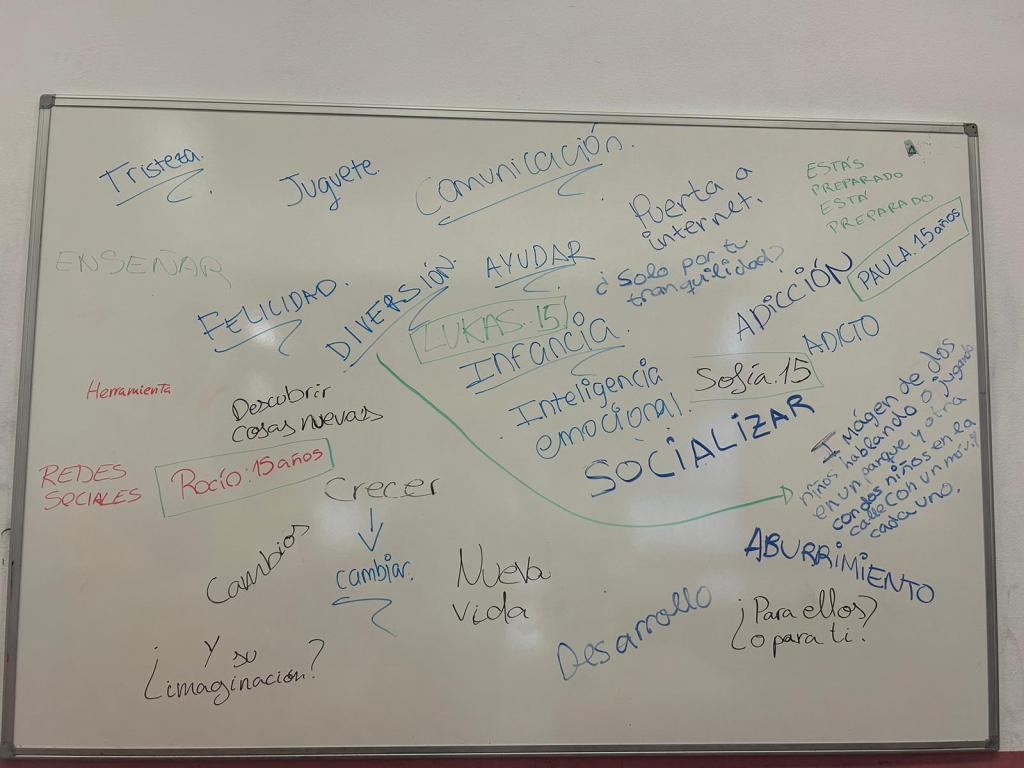 Tristeza.
Juguete.
Comunicación.
Puerta a
internet.
¿Solo por tu
tranquilidad?
ESTÁS
PREPARADO
ESTÁ
PREPARADO
PAULA. 15 años
ENSEÑAR
FELICIDAD.
DIVERSIÓN.
AYUDAR
LUKAS. 15
Infancia.
Inteligencia
emocional.
ADICCIÓN
ADICTO
Sofía. 15
SOCIALIZAR
Herramienta
Descubrir
cosas nuevas
REDES
SOCIALES
Rocío: 15 años
Crecer
cambiar.
Cambios
Nueva
vida
Imágen de dos
niños hablando o jugando
en un parque y otra
con dos niños en la
calle con un móvil
cada uno.
ABURRIMIENTO
¿Para ellos?
¿o para ti?
Desarrollo
¿Y su
imaginación?